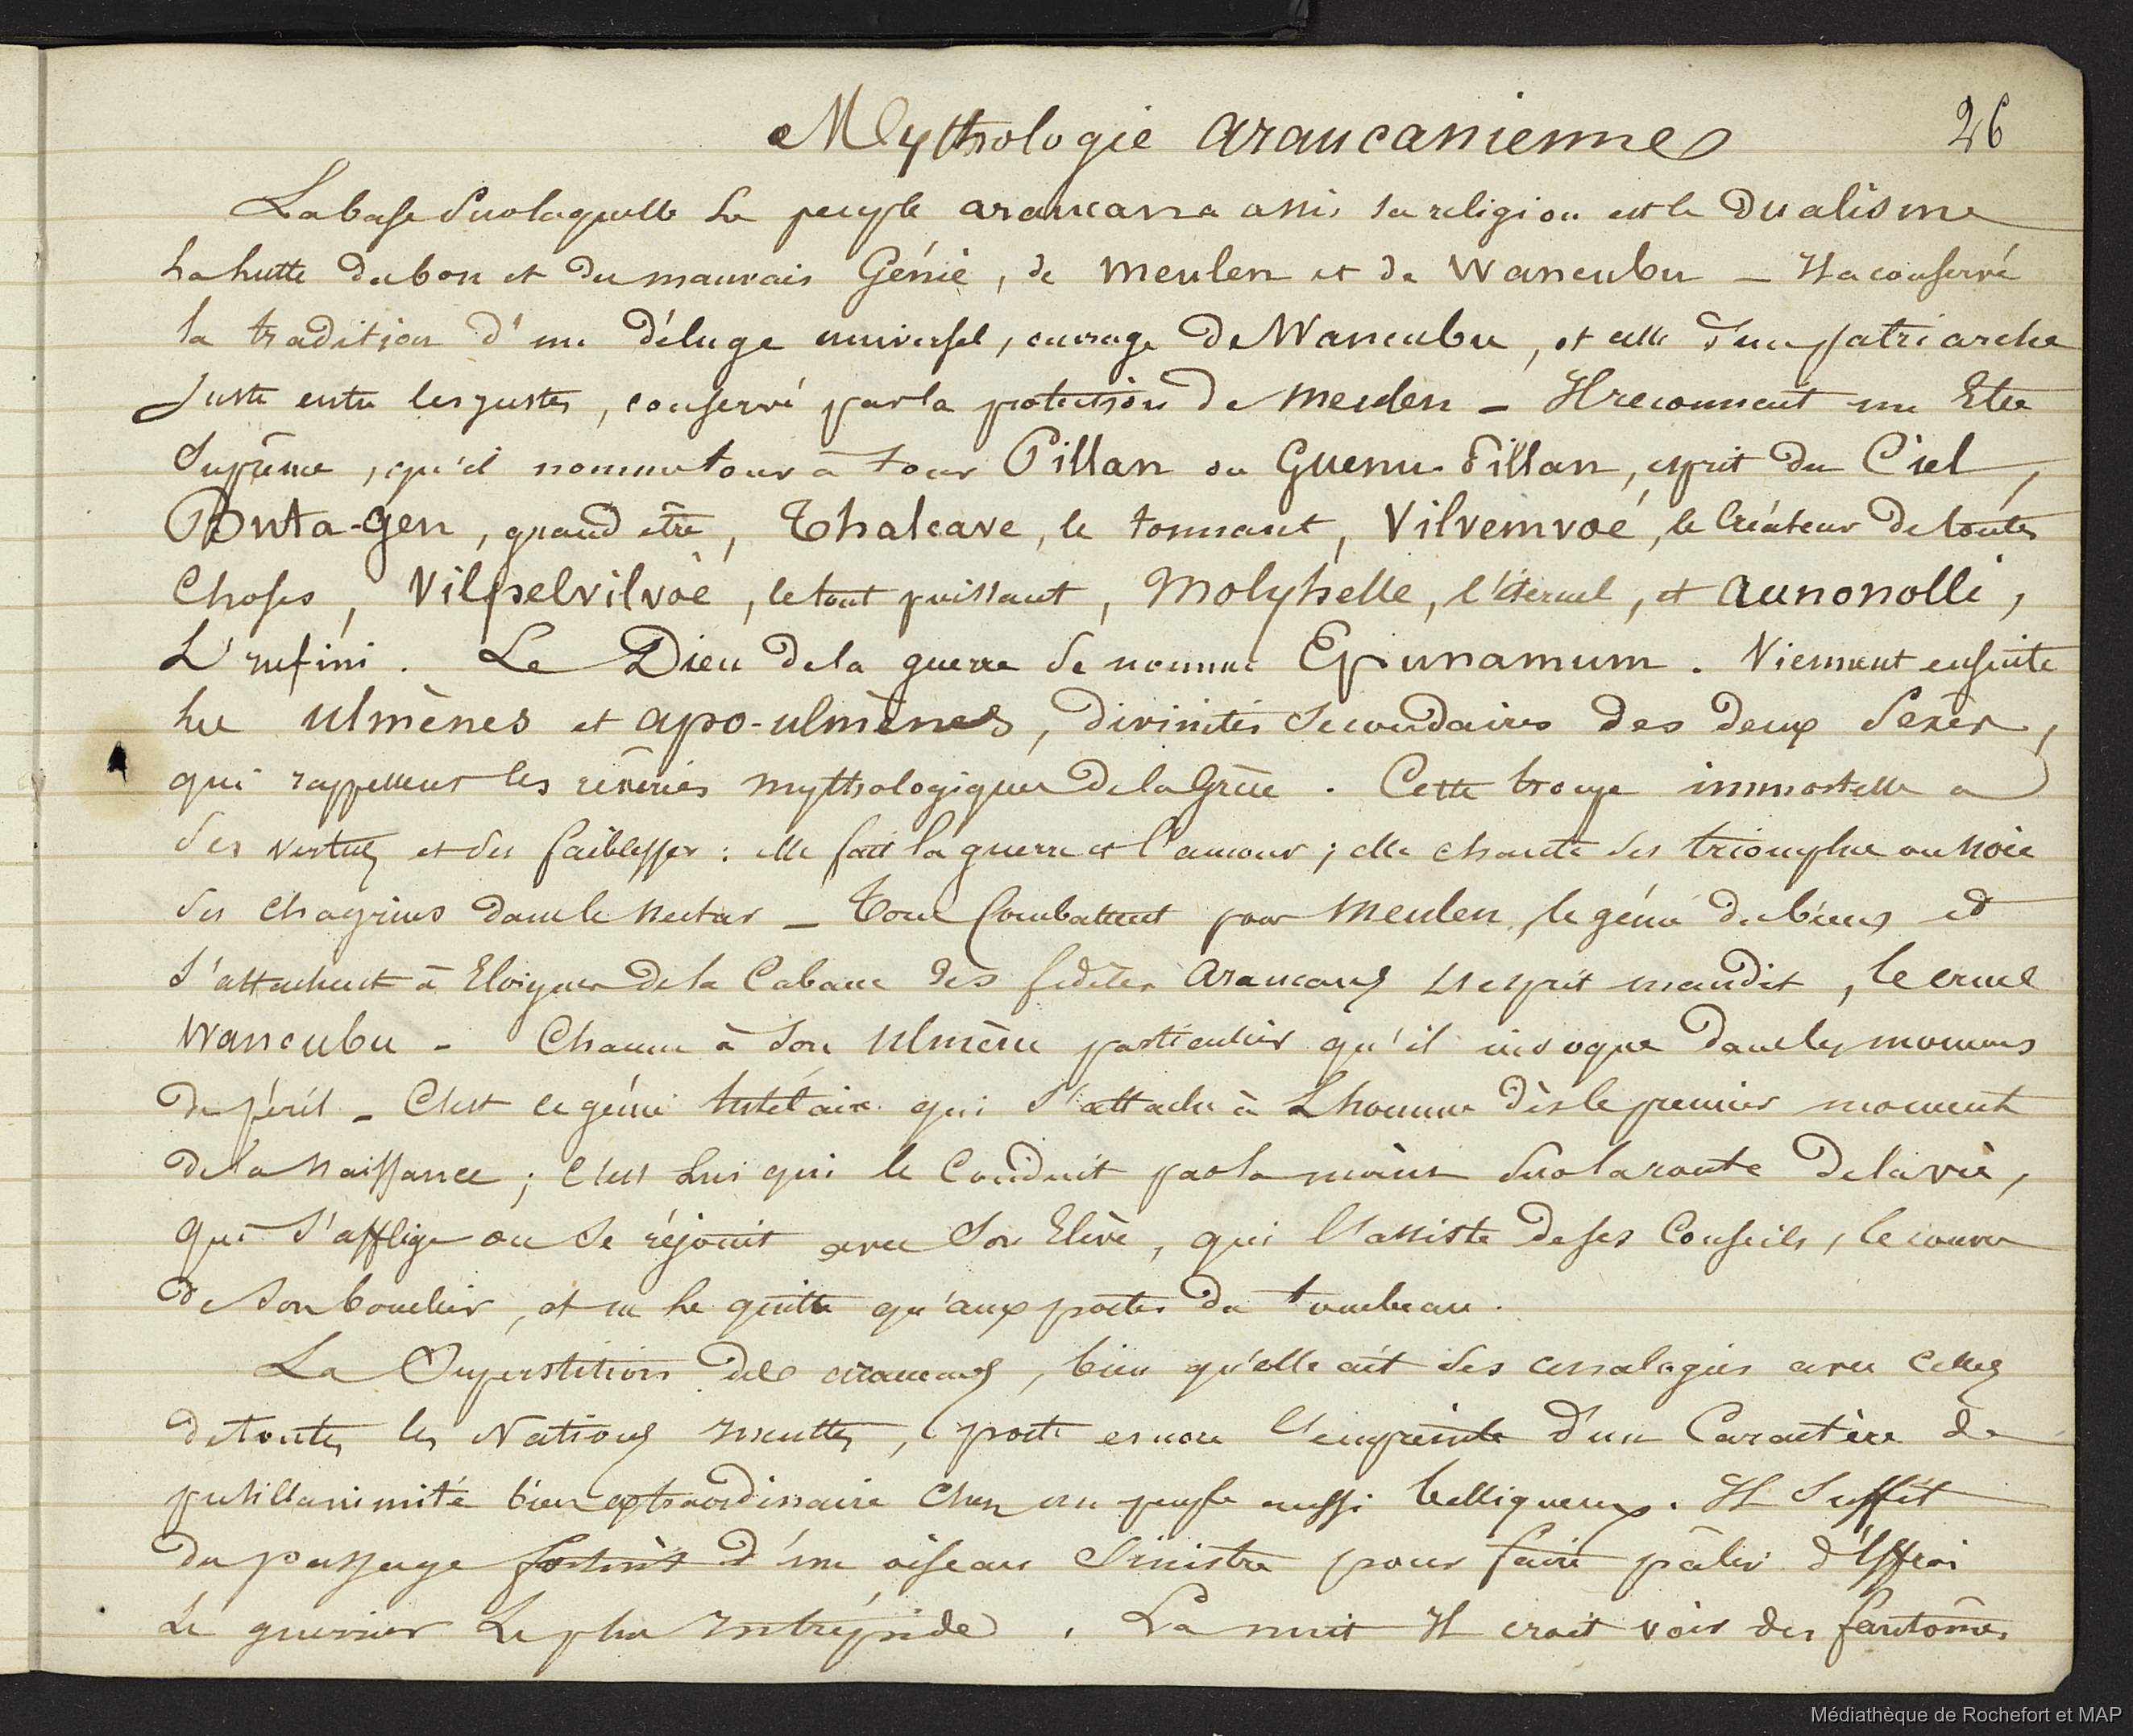 Mythologie araucanienne
26
La base sur laquelle le peuple araucan a assis sa religion est le Dualisme
la lutte du bon et du mauvais Génie, de Meulen et de Wancubu _ Il a conservé
la tradition d'un déluge universel, ouvrage de Wancubu, et celle d'un patriarche
Juste entre les justes, conservé par la protection de Meulen _ Il reconnait un Etre
Suprême, qu'il nomme tour à tour Pillan ou Guenu-Pillan, esprit du Ciel,
Bouta-gen, grand être, Thalcave, le tonnant, Vilvemvoé, le Créateur de toutes
Choses, Vilpelvilvoé, le tout puissant, Molghelle, l'éternel, et aunonolli,
L'infini. Le Dieu de la guerre se nomme Epunamum. Viennent ensuite
les ulmènes et apo-ulmènes, divinités secondaires des deux Sexes,
qui rappellent les rêveries mythologiques de la Grèce. Cette troupe immortelle a
ses vertus et ses faiblesses : elle fait la guerre et l'amour ; elle chante ses triomphes ou noie
ses chagrins dans le nectar _ Tous combattent pour Meulen, le génie du bien et
s'attachent à Eloigner de la Cabane des fidèles araucans L'esprit maudit, le cruel
Wancubu _ Chacun à son ulmène particulier qu'il invoque dans les momens
de péril _ C'est ce génie tutélaire qui s'attache à L'homme dès le premier moment
de la naissance ; c'est lui qui le conduit par la main sur la route de la vie,
qui s'afflige ou se réjouit avec son Elève, qui l'assiste de ses Conseils, le couvre
de son bouclier, et ne le quitte qu'aux portes du tombeau.
La Superstition des araucans, bien qu'elle ait des analogies avec celles
de toutes les Nations incultes, porte encore l'empreinte d'un Caractère de
pusillanimité bien extraordinaire chez un peuple aussi belliqueux. Il suffit
du passage fortuit d'un oiseau sinistre pour faire pâlir d'Effroi
Le guerrier Le plus intrépide. La nuit Il croit voir des fantômes
Médiathèque de Rochefort et MAP